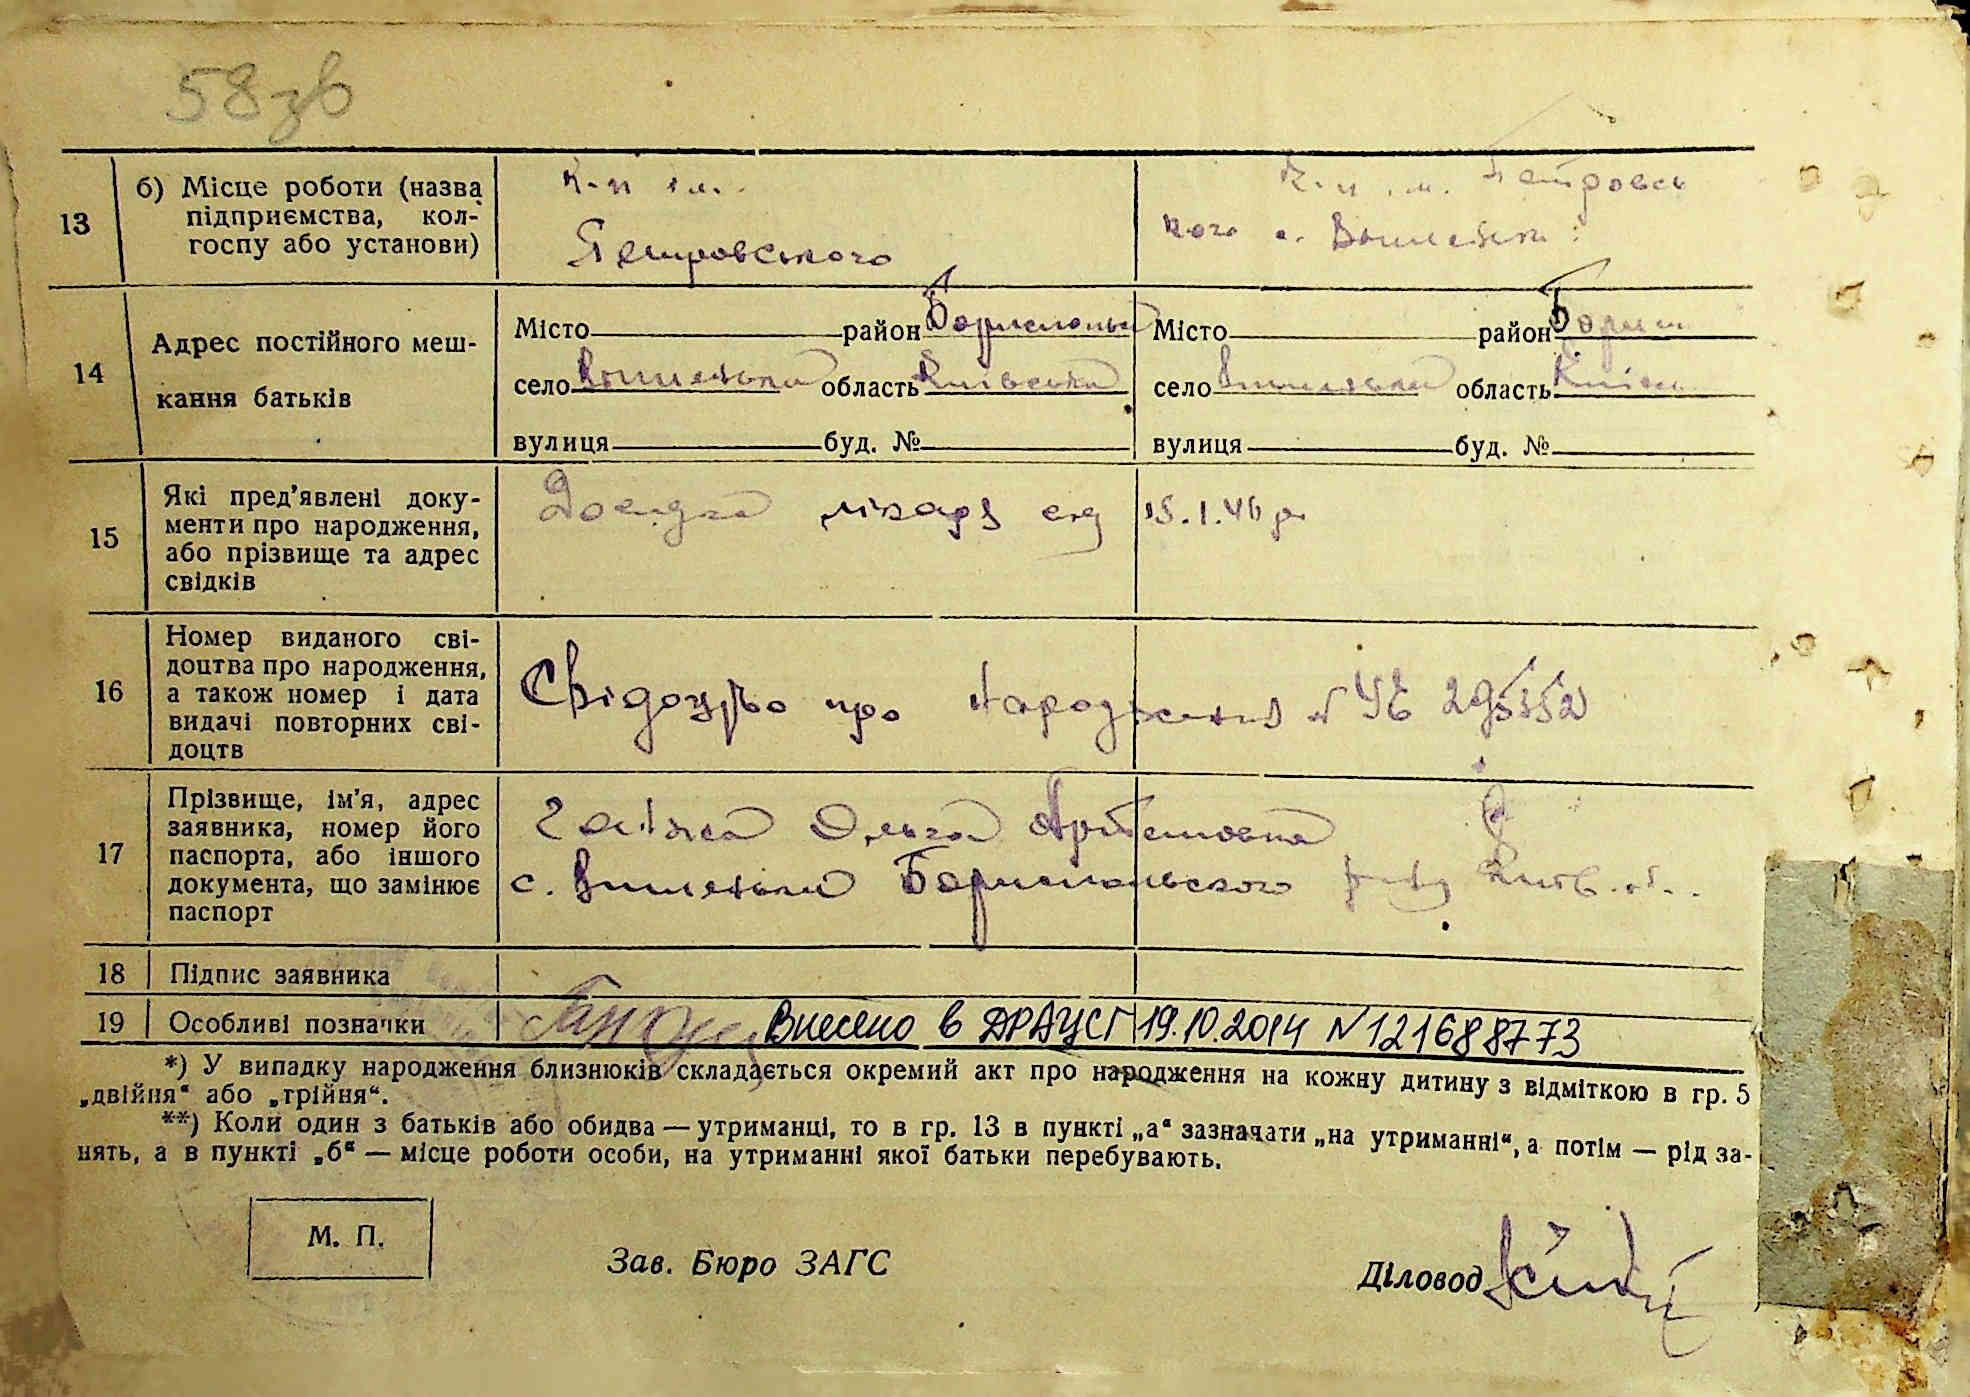 58зв
13 б) Місце роботи (назва підприємства, кол-
госпу або установи)
к-п ім.
Петровського
к-п ім. Петровсь
кого с. Вишеньки
14 Адрес постійного меш-
кання батьків
Місто район Бориспольс
село Вишеньки область Київська
вулиця буд. №
Місто район Борисп
село Вишеньки область Київсь
вулиця буд. №
15 Які пред'явлені доку-
менти про народження,
або прізвище та адрес
свідків
Довідка лікаря від 15.1.46 р
16 Номер виданого сві-
доцтва про народження,
а також номер і дата
видачі повторних сві-
доцтв
Свідоцтво про народження № УЕ 295552
17 Прізвище, ім'я, адрес
заявника, номер його
паспорта, або іншого
документа, що замінює
паспорт
Ольга Артемовна
с. Вишеньки Бориспольского р-ну Київ. об.
18 Підпис заявника
19 Особливі позначки
Внесено в ДРАЦСГ 19.10.2014 №121688773
*) У випадку народження близнюків складається окремий акт про народження на кожну дитину з відміткою в гр. 5
„двійня“ або „трійня“.
**) Коли один з батьків або обидва — утриманці, то в гр. 13 в пункті „а“ зазначати „на утриманні“, а потім — рід за-
нять, а в пункті „б“ — місце роботи особи, на утриманні якої батьки перебувають.
М. П.
Зав. Бюро ЗАГС
Діловод